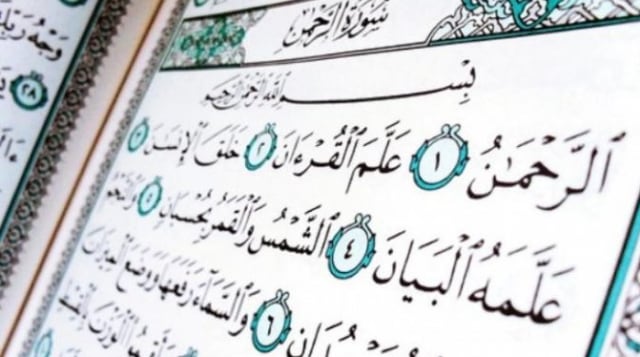 سُورَةُ الرَّحْمَٰن
بِسْمِ ٱللَّهِ ٱلرَّحْمَٰنِ ٱلرَّحِيمِ
ٱلرَّحْمَٰنُ ١ عَلَّمَ ٱلْقُرْءَانَ ٢ خَلَقَ ٱلْإِنسَٰنَ ٣
عَلَّمَهُ ٱلْبَيَانَ ٤ ٱلشَّمْسُ وَٱلْقَمَرُ بِحُسْبَانٍ ٥ وَٱلنَّجْمُ
٦ وَٱلسَّمَآءَ رَفَعَهَا وَوَضَعَ ٱلْمِيزَانَ
وَجْهُ رَبِّكَ
٢٨